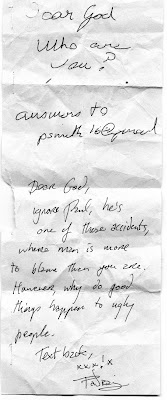 Dear God
Who are
you?
answers to
Dear God,
ignore Paul, he's
one of those accidents,
where man is more
to blame than you are.
However, why do good
things happen to ugly
people.
Text back,
xxx!x